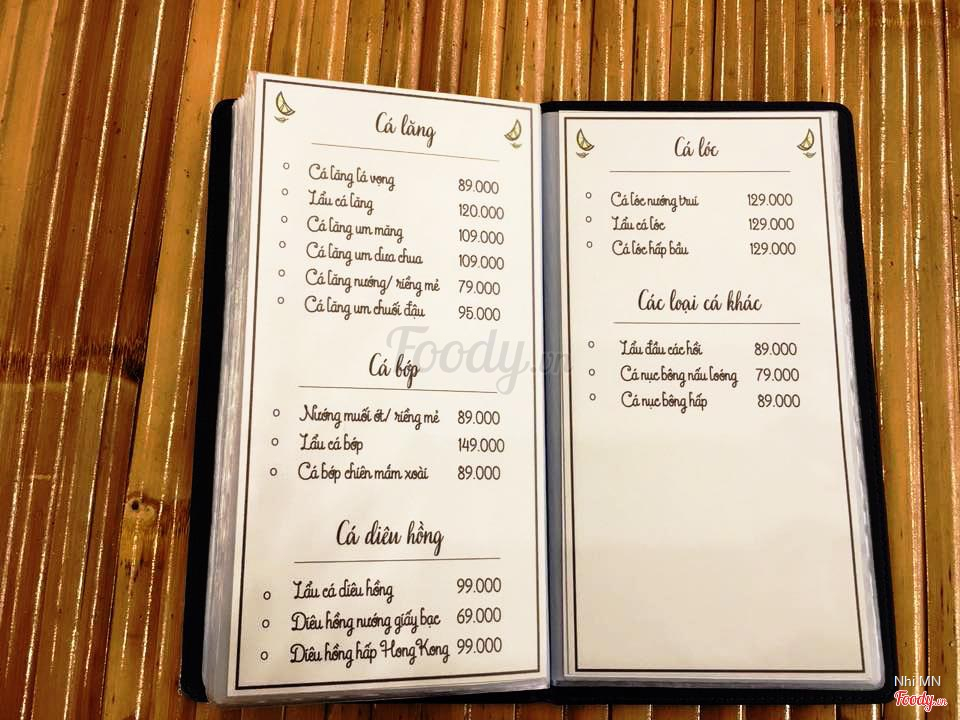 Cá lăng
Cá lăng lá vọng 89.000
Lẩu cá lăng 120.000
Cá lăng um măng 109.000
Cá lăng um dưa chua 109.000
Cá lăng nướng/ riềng mẻ 79.000
Cá lăng um chuối đậu 95.000
Cá bớp
Nướng muối ớt/ riềng mẻ 89.000
Lẩu cá bớp 149.000
Cá bớp chiên mắm xoài 89.000
Cá diêu hồng
Lẩu cá diêu hồng 99.000
Diêu hồng nướng giấy bạc 69.000
Diêu hồng hấp HongKong 99.000
Cá lóc
Cá lóc nướng trui 129.000
Lẩu cá lóc 129.000
Cá lóc hấp bầu 129.000
Các loại cá khác
Lẩu đầu các hồi 89.000
Cá nục bông nấu loóng 79.000
Cá nục bông hấp 89.000
Foody.vn
Nhi MN
Foody.vn